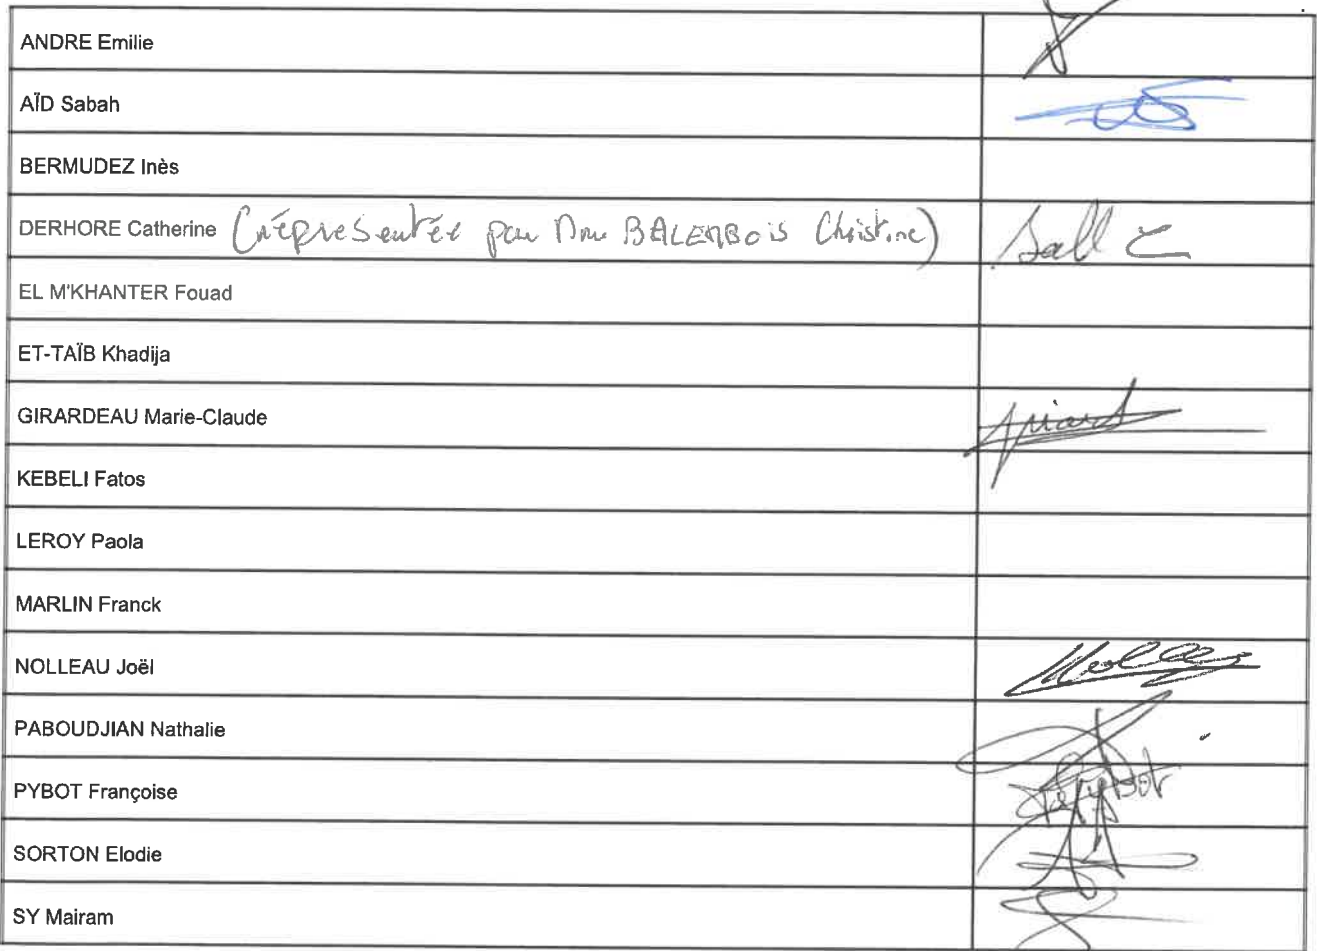 ANDRE Emilie
AÏD Sabah
BERMUDEZ Inès
DERHORE Catherine (représentée par Mme BALENBOIS Christine)
EL M'KHANTER Fouad
ET-TAÏB Khadija
GIRARDEAU Marie-Claude
KEBELI Fatos
LEROY Paola
MARLIN Franck
NOLLEAU Joël
PABOUDJIAN Nathalie
PYBOT Françoise
SORTON Elodie
SY Mairam